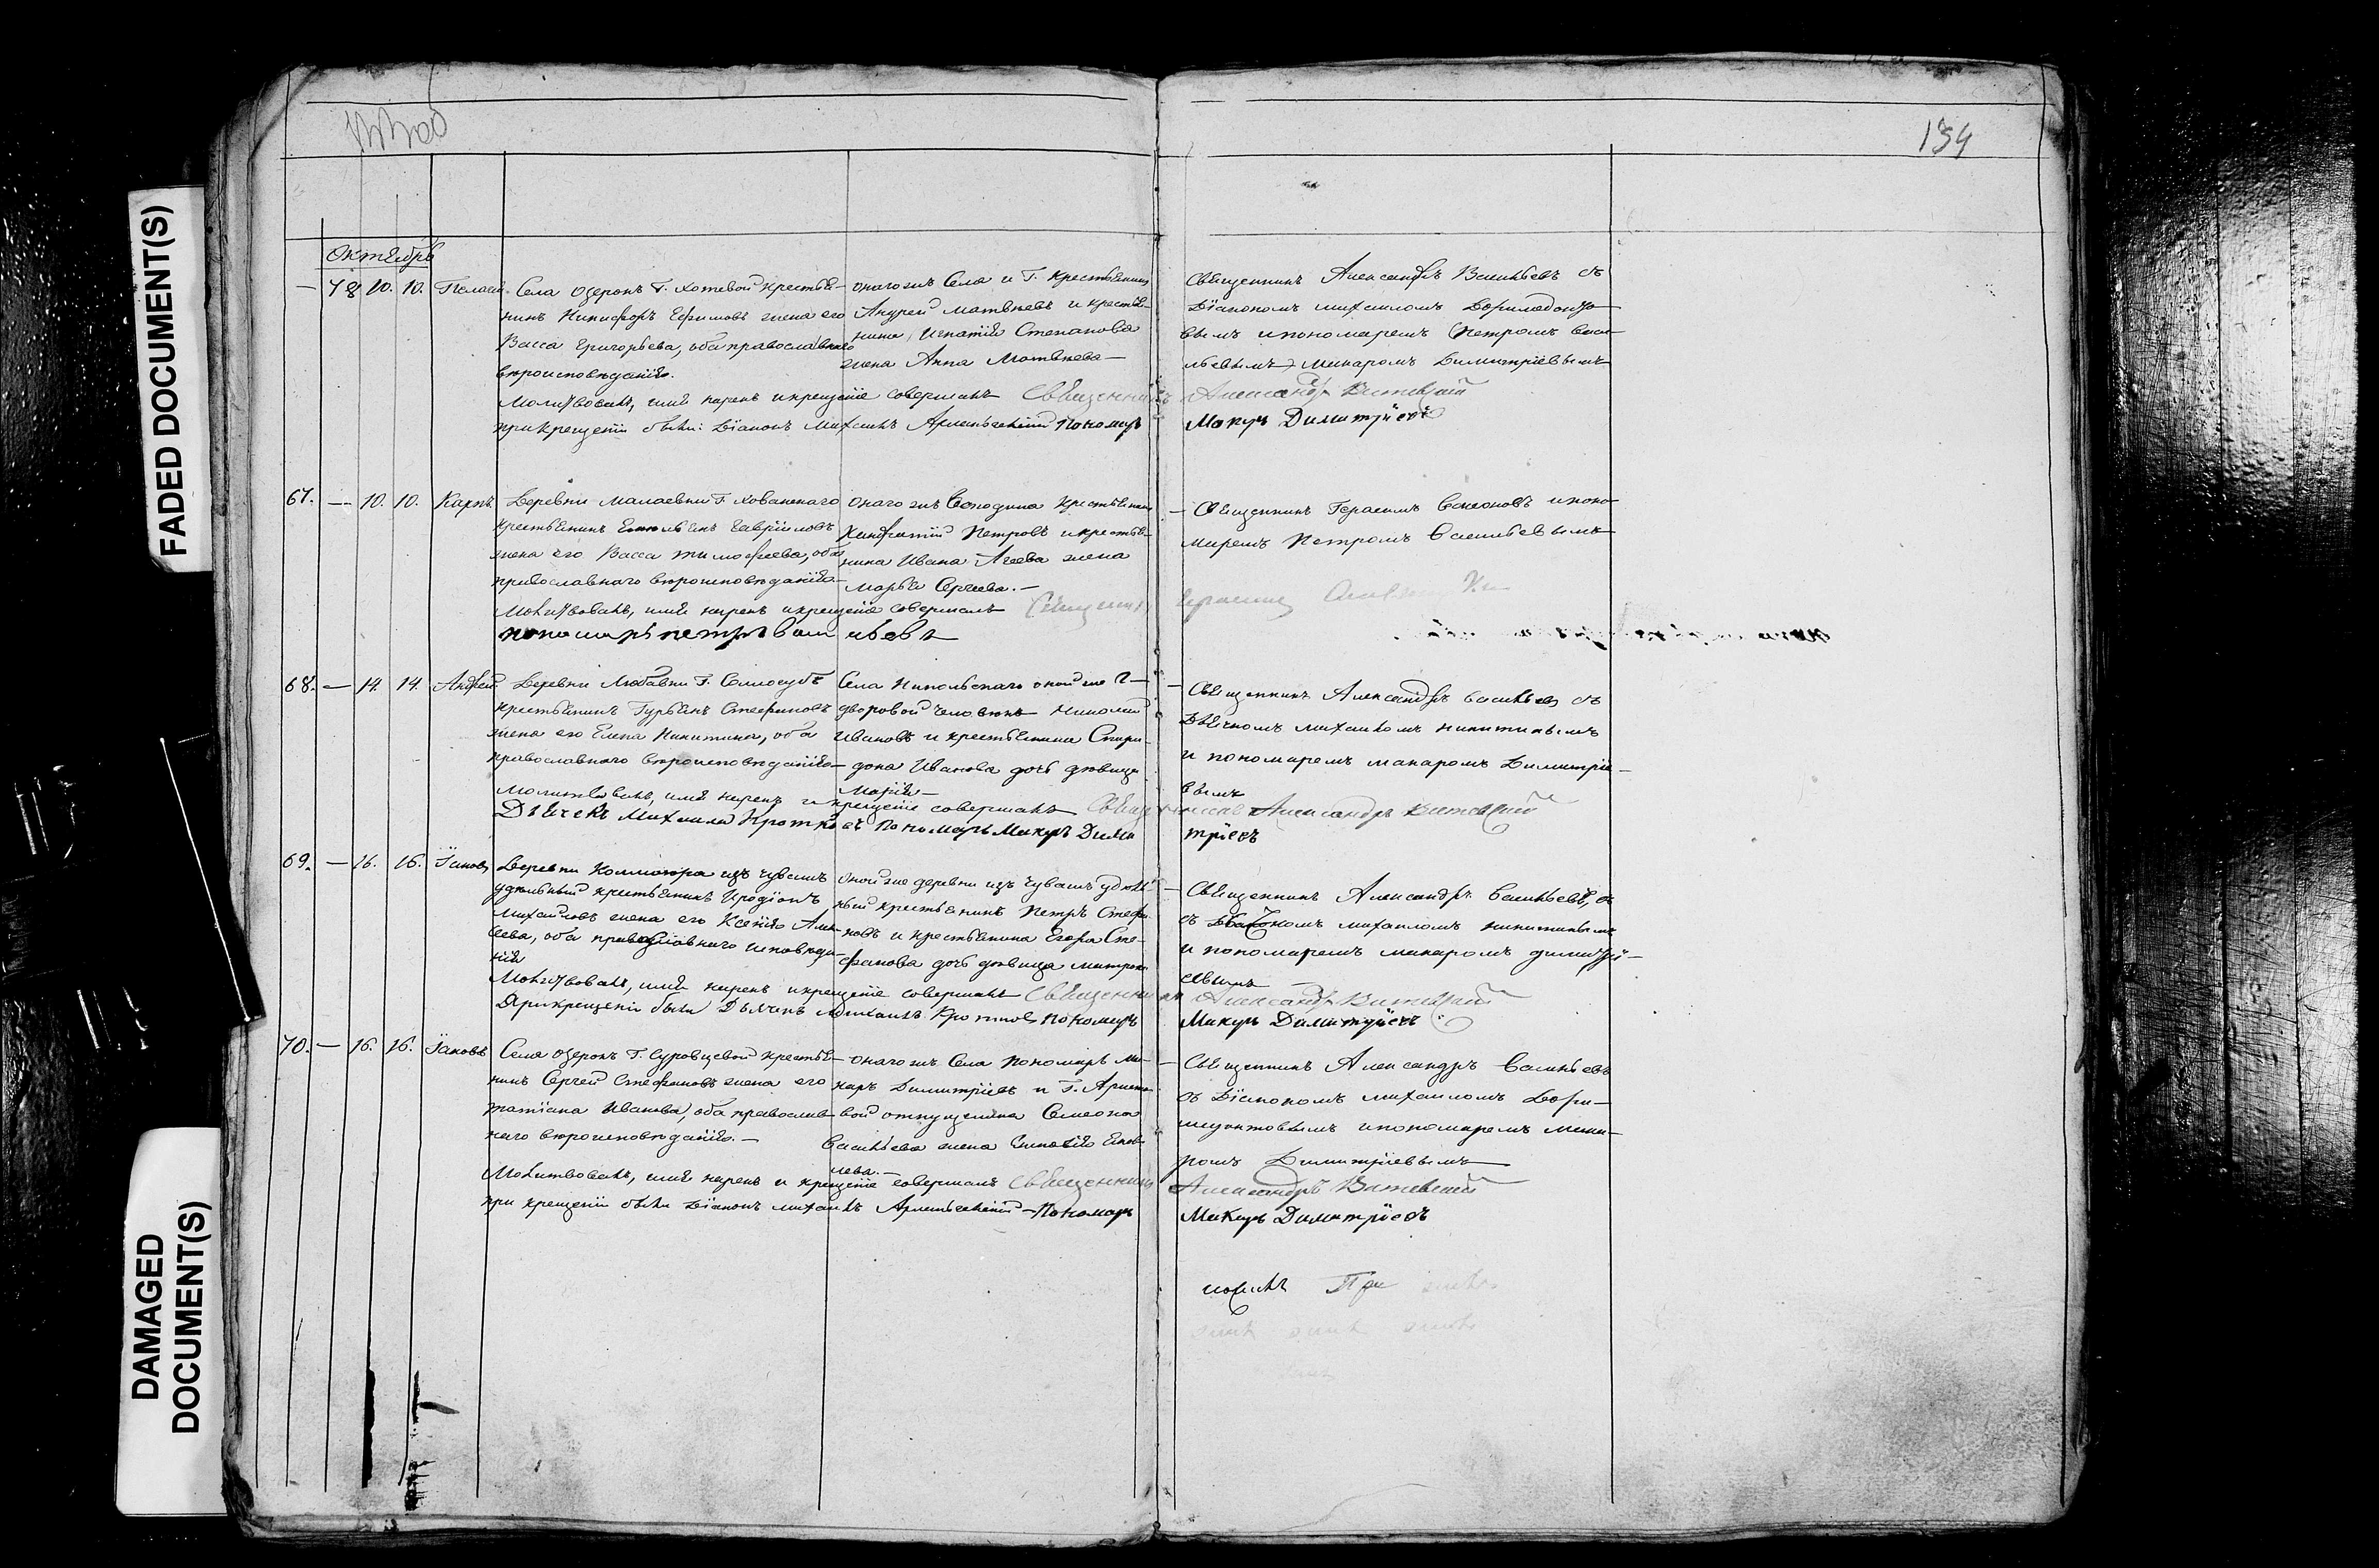 FADED DOCUMENT(S)
DAMAGED
DOCUMENT(S)
134
Октябрь
— 78 10. 10. Пелагея
Села Озерокъ Г. Хотевой крестья-
нинъ Никифоръ Ефимовъ жена его
Васса Григорьева, оба православнаго
вѣроисповѣданія.
онаго жъ Села и Г. крестьянинъ
Андрей Матвѣевъ и крестья-
нина Игнатія Степанова
жена Анна Матвѣева —
Священникъ Александръ Васильевъ съ
Діакономъ Михаиломъ
вымъ и пономаремъ Петромъ Васи-
льевымъ Макаромъ Димитріевымъ
Молитвовалъ, имя нарекъ и крещеніе совершалъ Священникъ Александръ
при крещеніи были: Діаконъ Михаилъ Пономарь Макаръ Димитріевъ
67. — 10. 10. Карпъ.
Деревни Малаевки Г. Хованскаго
крестьянинъ Гавріиловъ
жена его Васса Тимофеева, оба
православнаго вѣроисповѣданія —
онаго жъ Господина крестьянинъ
Петровъ и крестья-
нина Ивана Агеева жена
Марья Сергеева. —
— Священникъ Герасимъ и поно-
маремъ Петромъ Васильевымъ
Молитвовалъ, имя нарекъ и крещеніе совершалъ Священникъ Герасимъ
пономарь петръ васильевъ
68. — 14. 14. Андрей.
Деревни Любавки Г.
крестьянинъ Гурьянъ Стефановъ
жена его Елена Никитина, оба
православнаго вѣроисповѣданія —
Села Никольскаго оной же Г —
дворовой человѣкъ Николай
Ивановъ и крестьянина Спири-
дона Иванова дочь дѣвица
Марія —
— Священникъ Александръ Васильевъ съ
Дьячкомъ Михаиломъ Никитинымъ
и пономаремъ Макаромъ Димитріе —
вымъ
Молитвовалъ, имя нарекъ и крещеніе совершалъ Священникъ Александръ
Дьячекъ Михаила Кротковъ Пономарь Макаръ Дими
тріевъ
69. — 16. 16. Іаковъ
Деревни изъ чувашъ
удѣльный крестьянинъ Иродіонъ
Михайловъ жена его Ксенія Алек-
сеева, оба православнаго исповѣда-
нія
оной же деревни изъ чувашъ удѣль-
ный крестьянинъ Петръ Стефа-
новъ и крестьянина Егора Сте-
фанова дочь дѣвица Матрона
— Священникъ Александръ Васильевъ, съ
съ Дьячкомъ Михаиломъ Никитинымъ
и пономаремъ Макаромъ Димитрі —
евымъ —
Молитвовалъ, имя нарекъ и крещеніе совершалъ Священникъ Александръ
При крещеніи были Дьячекъ Михаилъ Кротковъ Пономарь Макаръ Димитріевъ
70. — 16. 16. Іаковъ
Села Озерокъ Г. Суровцевой крестья-
нинъ Сергей Стефановъ жена его
Татіана Иванова, оба православ-
наго вѣроисповѣданія. —
онаго жъ Села Пономарь Ма-
каръ Димитріевъ и Г.
вой отпущеника Симеона
Васильева жена Яков-
лева. —
— Священникъ Александръ Васильевъ
съ Діакономъ Михаиломъ
и пономаремъ Мака-
ромъ Димитріевымъ
Молитвовалъ, имя нарекъ и крещеніе совершалъ Священникъ Александръ
при крещеніи были Діаконъ Михаилъ Пономарь Макаръ Димитріевъ
При